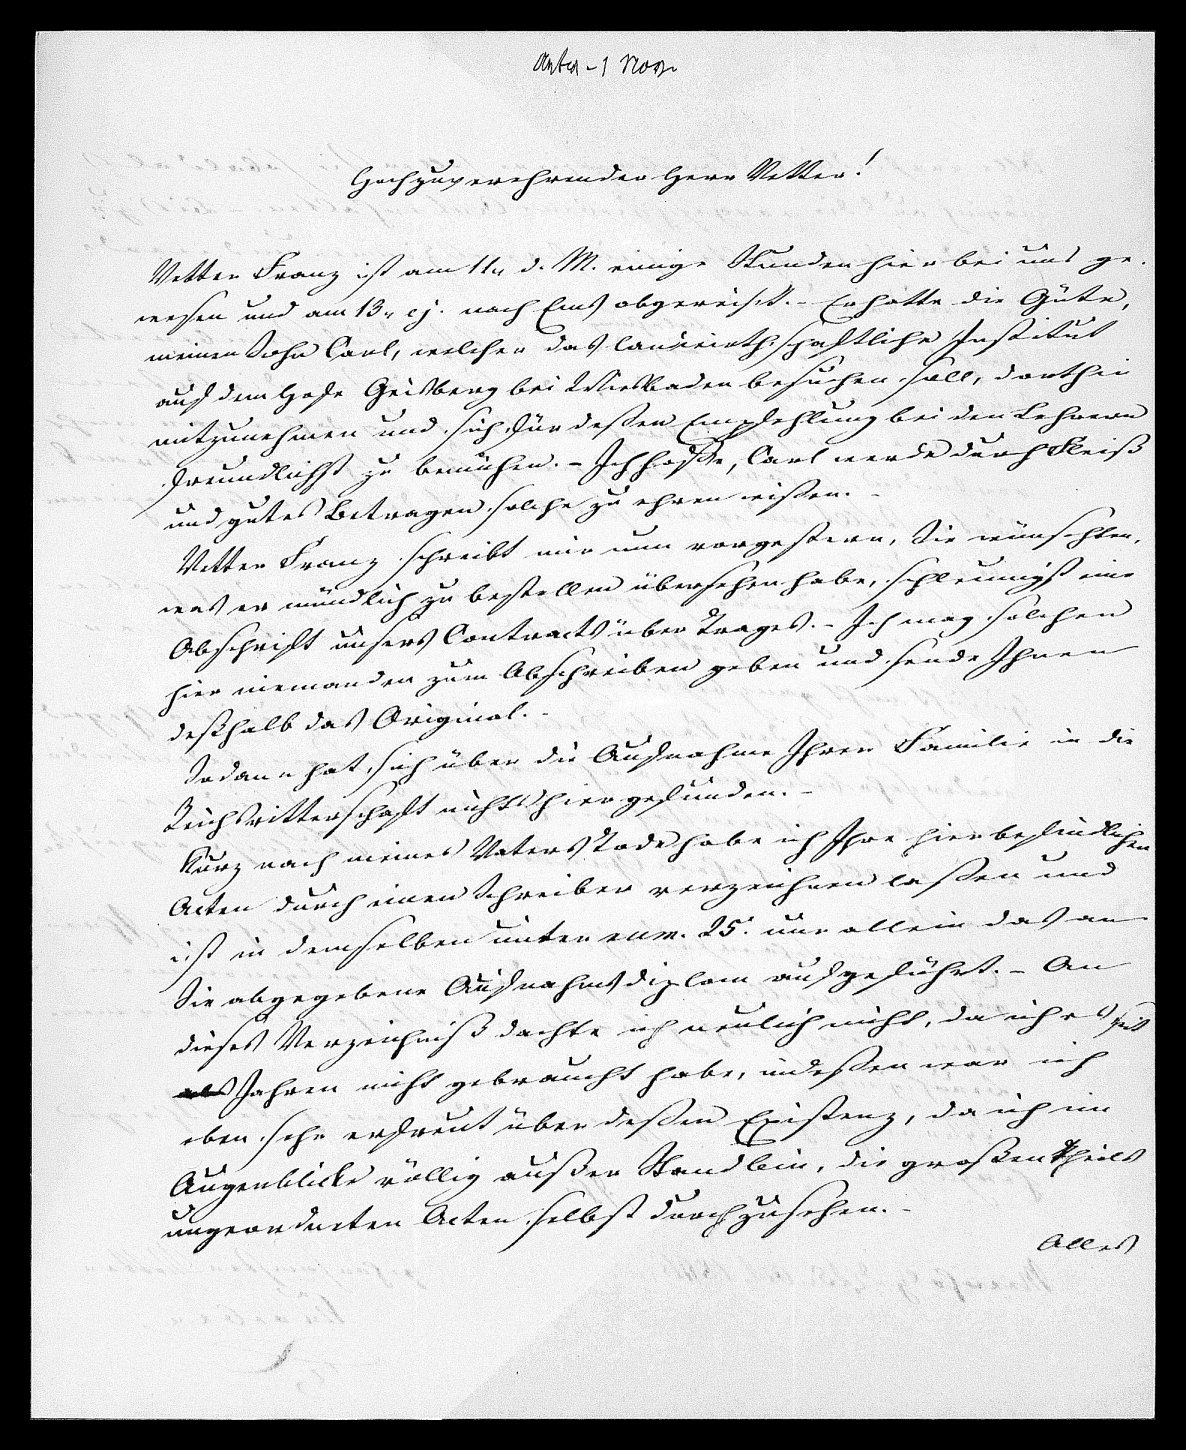 Antw. 1 Nov.
Hochzuverehrender Herr Vetter!
Vetter Franz ist am 11n d. M. einige Stunden hier bei uns ge-
wesen und am 13n ej. nach Ems abgereist. - Er hatte die Güte,
meinen Sohn Carl, welcher das landwirthschaftliche Institut
auf dem Hofe Geisberg bei Wiesbaden besuchen soll, dorthin
mitzunehmen und sich für deßen Empfehlung bei den Lehrern
freundlichst zu bemühen. - Ich hoffe, Carl werde durch Fleiß
und gutes Betragen solche zu ehren wißen. -
Vetter Franz schreibt mir nun vorgestern, Sie wünschten,
was er mündlich zu bestellen übersehen habe, schleunigst eine
Abschrift unsers Contracts über Trages. - Ich mag solchen
hier niemanden zum Abschreiben geben und sende Ihnen
deßhalb das Original. -
Sodann hat sich über die Aufnahme Ihrer Familie in die
Reichsritterschaft nichts hier gefunden. -
Kurz nach meines Vaters Tode habe ich Ihre hier befindlichen
Acten durch einen Schreiber verzeichnen laßen und
ist in demselben unter num. 25. nur allein das an
Sie abgegebene Aufnahmsdiplom aufgeführt. - An
dieses Verzeichniß dachte ich neulich nicht, da ich es seit
Jahren nicht gebraucht habe, indeßen war ich
eben sehr erfreut über deßen Existenz, da ich im
Augenblicke völlig außer Stand bin, die großentheils
ungeordneten Acten selbst durchzusehen. -
Alles